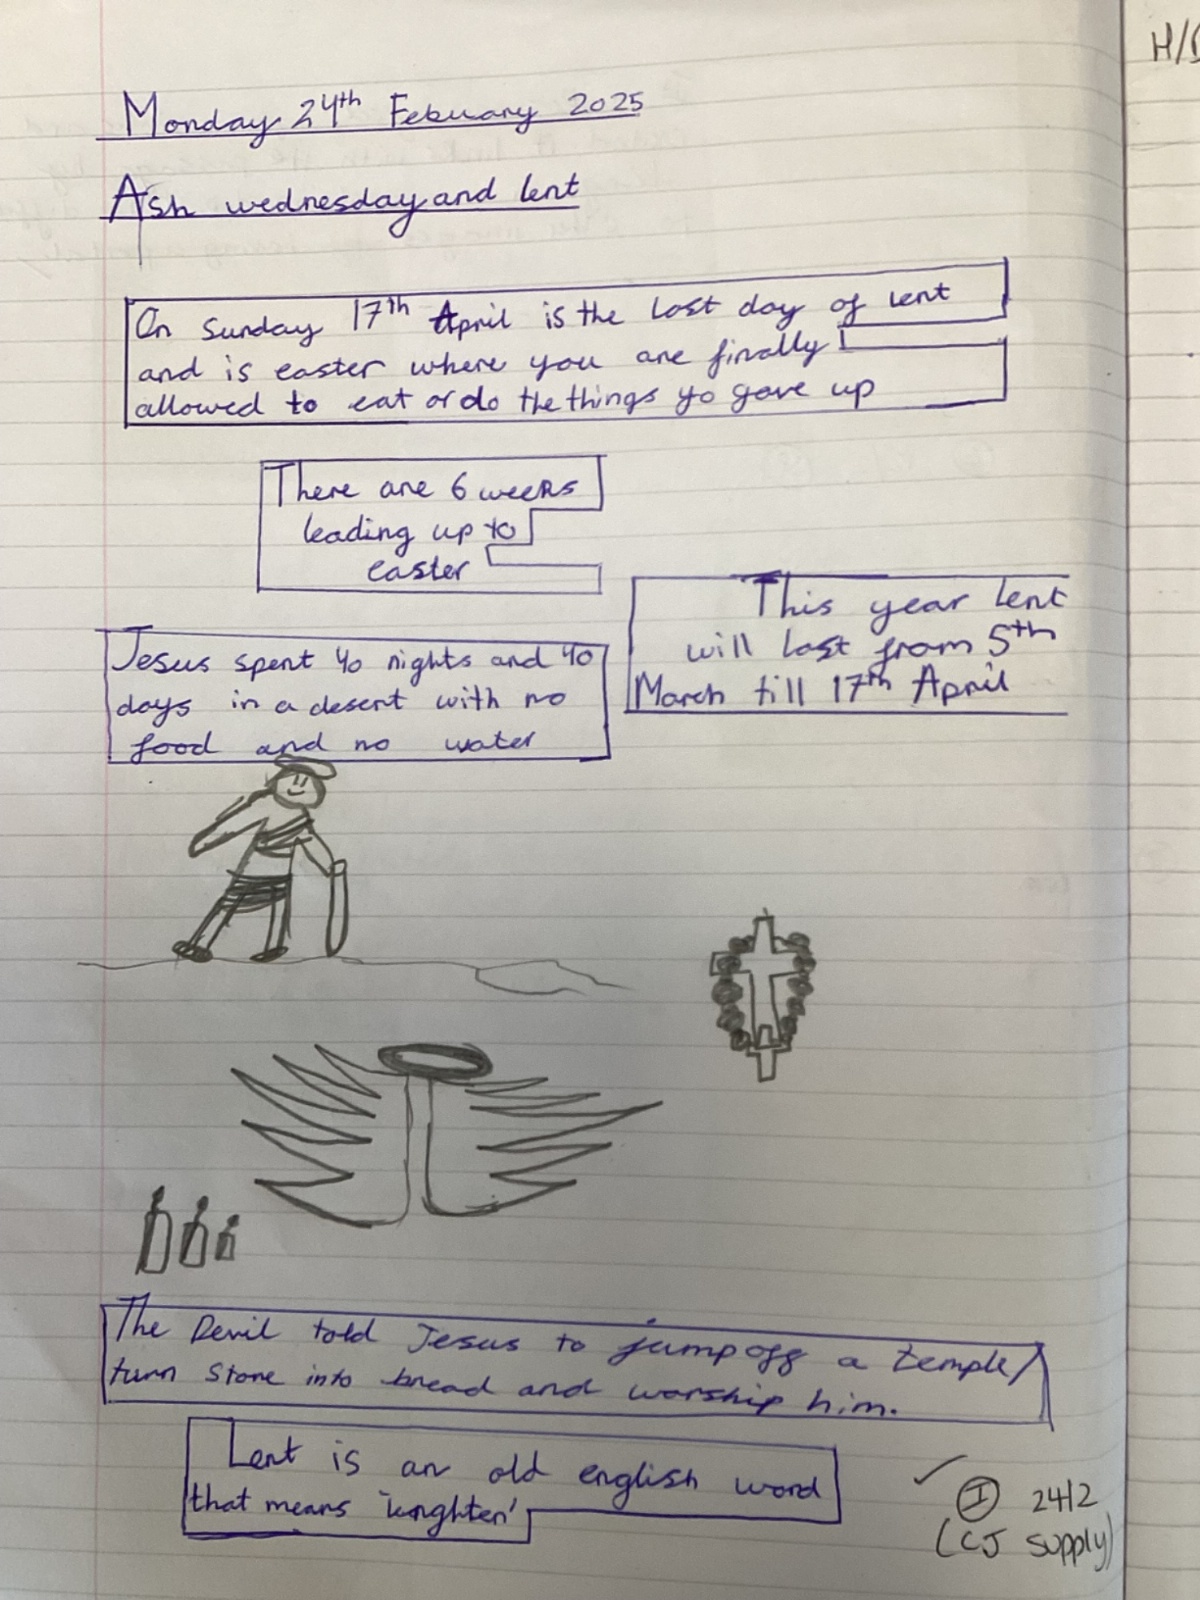 H/
Monday 24th Febuary 2025
Ash wednesday and lent
On Sunday 17th April is the last day of lent
and is easter where you are finally
allowed to eat or do the things yo gave up
There are 6 weeks
leading up to
easter
This year lent
will last from 5th
March till 17th April
Jesus spent 40 nights and 40
days in a desert with no
food and no water
The Devil told Jesus to jump off a temple/
turn stone into bread and worship him.
Lent is an old english word
that means 'lenghten'
✓ I 24/2
(CJ supply)